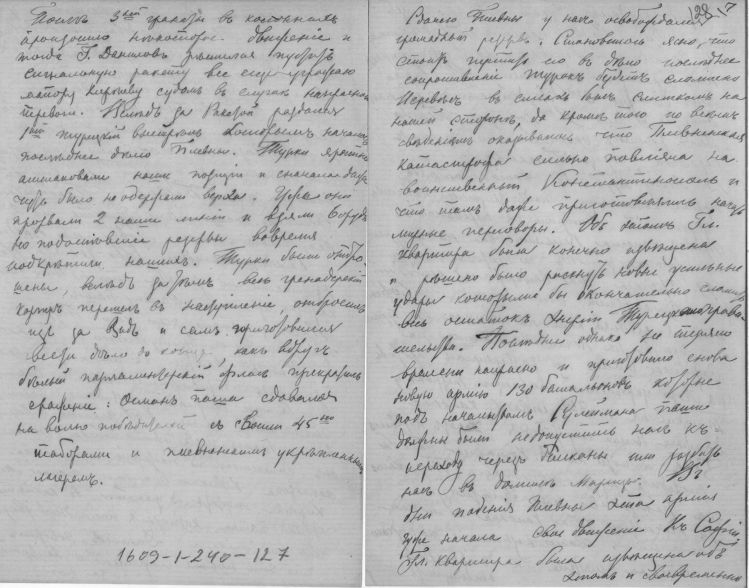 Послѣ 3ей гранаты въ колоннахъ
произошло нѣкоторое движеніе и
тогда Г. Даниловъ рѣшился пустить
сигнальную ракету
маіору судомъ въ случаѣ напрасной
тревоги. Вслѣдъ за Ракетой раздался
1ый турецкій выстрѣлъ которымъ началось
послѣднее дѣло Плевны. Турки яростно
аттаковали наши позиціи и сначала даже
чуть было не одержали верха. Уже они
прорвали 2 наши линіи и взяли 6 орудій
но подоспѣвшіе резервы во время
подкрѣпили нашихъ. Турки были отбро-
шены, вслѣдъ за этимъ весь гренадерскій
корпусъ перешелъ въ наступленіе, отбросилъ
ихъ за Видъ и самъ приготовился
вести дѣло до конца, какъ вдругъ
бѣлый парламентерскій флагъ прекратилъ
сраженіе: Османъ паша сдавался
на волю побѣдителей съ своими 45ю
таборами и плевненскимъ укрѣпленнымъ
лагеремъ.
1609-1-240-127
128
17
Взятіе Плевны у насъ освобождало
громадный резервъ. Становилось ясно, что
стоитъ пустить его въ дѣло послѣднее
сопротивленіе турокъ будетъ сломлено
Перевѣсъ въ силахъ былъ слишкомъ на
нашей сторонѣ, да кромѣ того по всѣмъ
свѣдѣніямъ оказывалось что Плевненская
катастрофа сильно повліяла на
воинственный Константинополь и
что тамъ даже приготовлялись начать
мирные переговоры. Объ этомъ Гл.
квартира была конечно извѣщена
и рѣшено было рискнуть новые усиленные
удары которыми бы окончательно сломить
весь остатокъ энергіи Турецкаго прави-
тельства. Послѣднее однако не теряло
времени напрасно и приготовило снова
новую армію 130 баталіоновъ которые
подъ начальствомъ Сулеймана паши
должны были недопустить насъ къ
переходу черезъ Балканы или разбить
насъ въ долинѣ Марицы. Въ
дни паденія Плевны эта армія
уже начала свое движеніе къ Софіи
Гл. Квартира была извѣщена объ
этомъ и своевременно